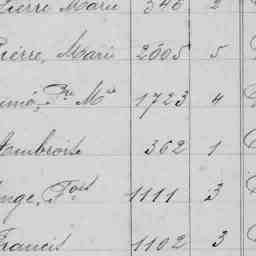 Pierre Marie 346 2
Pierre, Marie 2605 5
1723 4
Ambroise 362 1
Ange, Fois 1111 3
Francis 1102 3